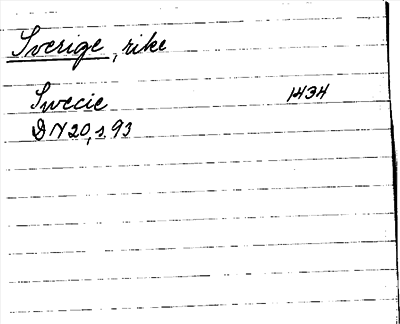 Sverige, rike
Swecie 1434
DN 20, s. 93